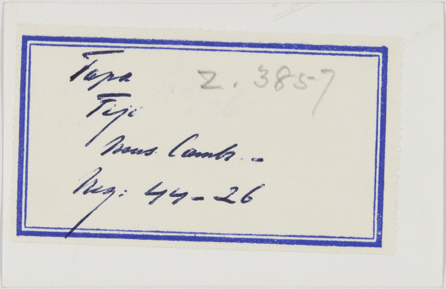 Tapa Z.3857
Fiji
Mus Camb.-
Neg: 44-26